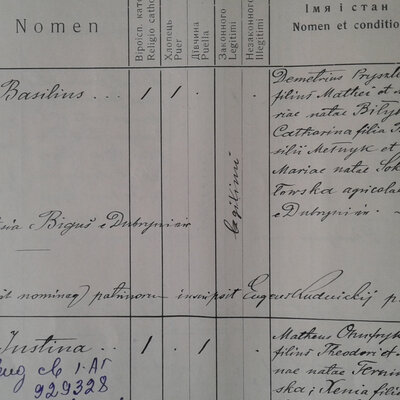 Nomen
Віроісп. като
Religio catho
Хлопець
Puer
Дївчина
Puella
Законного
Legitimi
Незаконного
Illegitimi
Імя і стан
Nomen et conditio
Basilius . . . 1 1 . .
Demetrius Pryszla
filius Mathei et M
riae natae Bilyk
Catharina filia
silii Melnyk et
Mariae natae Sok
łowska agricolae
e Dubryniw. -
legitimi
sia Biguś e Dubryniw
nomineq) patrinorum inscripsit Eugen Rudnickij p
Justina . . 1 . 1 .
Matheus Onufryk
filius Theodori et
nae natae
ska; Xenia filia
св 1-АГ
929328